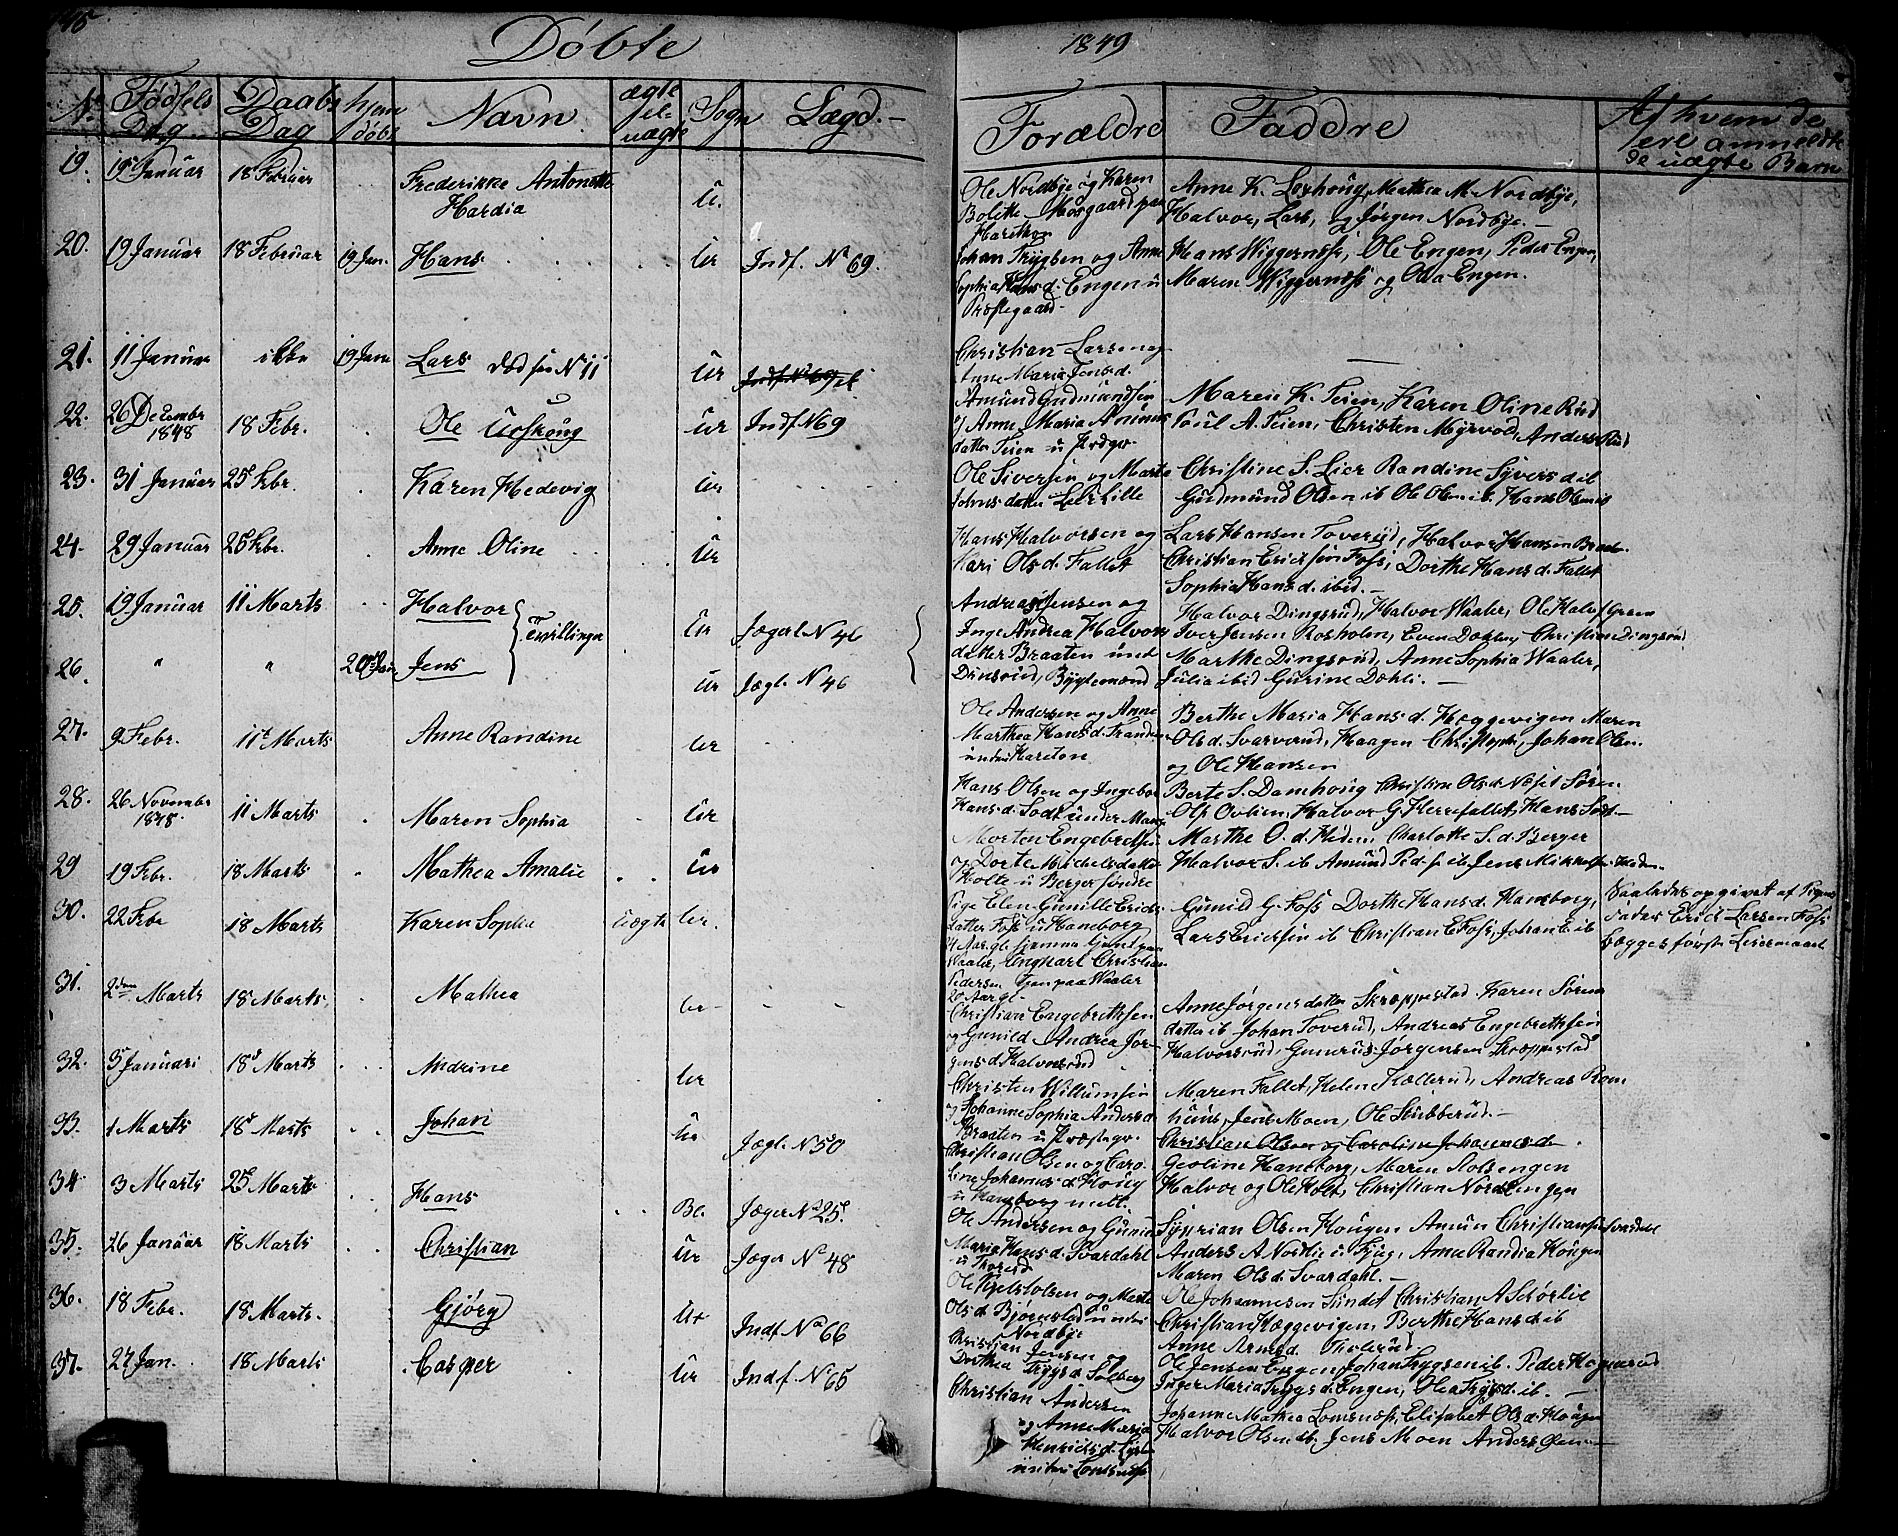 Døbte
1849
No Fødsels Dag Daabs Dag hjem døbt Navn ægte el. uægte Sogn Lægd.
Forældre Faddre Af hvem de ere anmeldte de uægte Børn
19. 19 Januar 18 Februar Frederikke Antonette Ur.
Hardia
Ole Nordbye og Karen
Bolette Mosgaard paa
Harethon
Anne K. Loxhoug, Mathea M. Nordbye,
Halvor, Lars, og Jørgen Nordbye.
20. 19 Januar 18 Februar 19 Jan. Hans Ur Indf. No 69.
Johan Trygsen og Anne
Sophia Hans d. Engen u
Præstegaard
Hans Wiggernsse, Ole Engen, Peder Engen,
Maren Wiggernsse og Olea Engen.
21. 11 Januar ikke 19 Janu Lars død see N 11 Ur
Christian Larsen og
Anne Maria Jensd.
22. 26 Decembr 1848 18 Febr. Ole Urskoug Ur Indf N 69
Amund Gudmundsen
og Anne Maria Amunds
datter Teien u Prdgr.
Maren K. Teien, Karen Oline Rud
Poul A. Teien, Christen Myrvod, Anders Rud
23. 31 Januar 25 Febr. Karen Hedevig Ur
Ole Siversen og Marte
Johnsdatter Lier Lille
Christine S. Lier Randine Syvers d ib
Gudmund Olsen ib Ole Olsen ib. Hans Olsen ib
24. 29 Januar 25 Febr. Anne Oline Ur
Hans Halvorsen og
Kari Ols d. Fallet
Lars Hansen Toverud, Halvor Hansen Braat.
Christian Ericksen Foss, Dorthe Hans d. Fallet
Sophia Hans d. ibid.
25. 19 Januar 11 Marts Halvor Tvillinger Ur Jægerl N 46
26. " " 20 Jan Jens Ur Jægl. N 46
Andreas Jensen og
Inge Andrea Halvors
datter Braaten und
Dinsrud, Bygtemænd
Halvor Dingsrud, Halvor Waaler, Ole Halvs Green
Iver Jensen Rosholm, Even Dohlen, Christian Dingsrud
Marthe Dingsrud, Anne Sophia Waaler,
Julia ibid Gurine Dæhli.
27. 9 Febr. 11t Marts Anne Randine Ur
Ole Andersen og Anne
Marthea Hans d. Tranden
under Hareton
Berthe Maria Hans d. Hæggevigen Maren
Ols d. Svarverud, Haagen Christoph, Johan Olsen.
og Ole Hansen
28. 26 November 1848. 11 Marts Maren Sophia Ur
Hans Olsen og Ingebor
Hans d. Sodt under
Berte S. Damhoug Christine Ols d. Næset Søren
Ols Ovlien, Halvor G. Herrefallet, Hans Sodt
29 19 Febr. 18 Marts Mathea Amalie Ur
Morten Engebretsen
og Dorte Michelsdatter
Holte u Berger søndre
Marthe O. d. Heden, Charlotte S. d Berger
Halvor S. ib Amund Ped. s. ib Jens Mikkelsen Heden.
30. 22 Febr 18 Marts Karen Sophie Uægte Ur.
Pige Elen Gunille Erichs
datter Foss u Haneborg
Waaler, Ungkarl Christian
Pedersen tjen paa Waaler
Gunild G. Foss Dorthe Hans d. Haneborg,
Lars Ericksen ib Christian E Foss, Johan E ib
Faderen opgivet af Pigens
Fader Erick Larsen Foss
begges første Leiermaal
31. 2den Marts 18 Marts Mathea Ur
Christian Engebrethsen
og Gunild Andrea Jør-
gens d. Halvorsrud
Anne Jørgensdatter Skræppestad Karen Sørens
datter ib Johan Toverud, Andreas Engebrethsen
Halvorsrud, Gunerus Jørgensen Skræppestad
32. 3 Januari 18 Marts Andrine Ur
Christen Willumsen
og Johanne Sophia Anders d.
Braaten u Præstegr.
Maren Fallet, Helene Kollerud, Andreas Rom
huus, Jens Moen, Ole Skibberud.
33. 1 Marts 18 Marts Johan Ur Jægl. N 50
Christian Olsen og Caro
line Johannes d Houg
u Haneborg
Christian Olsen og Caroline Johannesd.
Geoline Haneborg, Maren Stolsengen
Halvor og Ole Holt, Christian Nordengen
34 3 Marts 25 Marts Hans Bl. Jæger No 25.
Ole Andersen og Gunild
Maria Hans d. Svardahl
u Thorerud
Syprian Olsen Hougen Amun Christiansen Svardal
Anders A Nordlie u Tjug, Anne Randia Hougen
Maren Ols d. Svardahl.
35. 26 Januar 18 Marts Christian Ur Jæger No 48
Ole Kjelstolsen og Marte
Ols d. Bjørnstad under
Nordbye
Ole Johannesen Sundet Christian A Schørlie
Christian Hæggevigen, Berthe Hans d. ib
Anne Arnes d.
36. 18 Febr. 18 Marts. Gjörg Ur Indf No 66
Christian Jensen og
Dorthea Trygs d Solberg
Ole Jensen Engen, Johan Trygsen ib. Peder Hognerud
Inger Maria Trygs d. Engen, Olea Trygs d ib.
37. 27 Jan. 18 Marts Casper Ur Indf. N 65
Christian Andersen
og Anne Maria
Henrichs d.
Johanne Mathea Lomsnæss, Elisabet Ols d. Hougen
Halvor Olsen ib, Jens Moen Anders